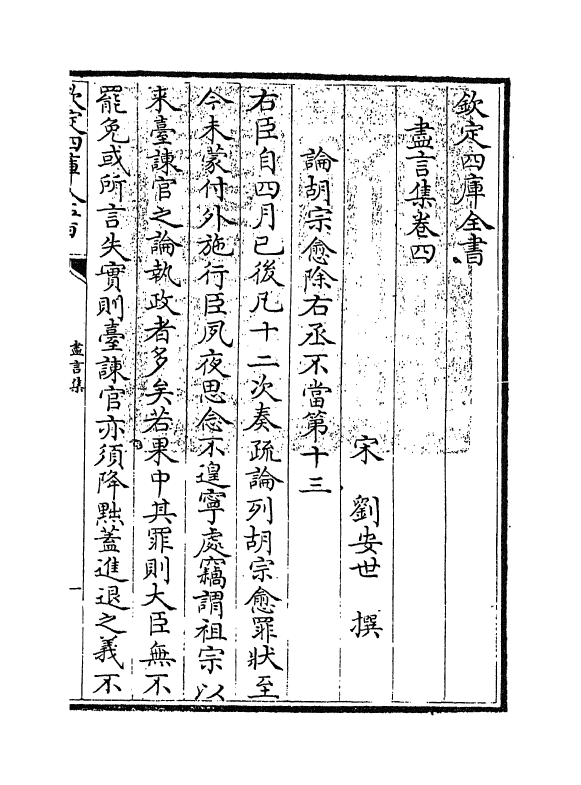 欽定四庫全書
盡言集卷四
宋 劉安世 撰
論胡宗愈除右丞不當第十三
右臣自四月已後凡十二次奏疏論列胡宗愈罪狀至
今未蒙付外施行臣夙夜思念不遑寧處竊謂祖宗以
来臺諫官之論執政者多矣若果中其罪則大臣無不
罷免或所言失實則臺諫官亦須降黜蓋進退之義不
欽定四庫全書
盡言集
一